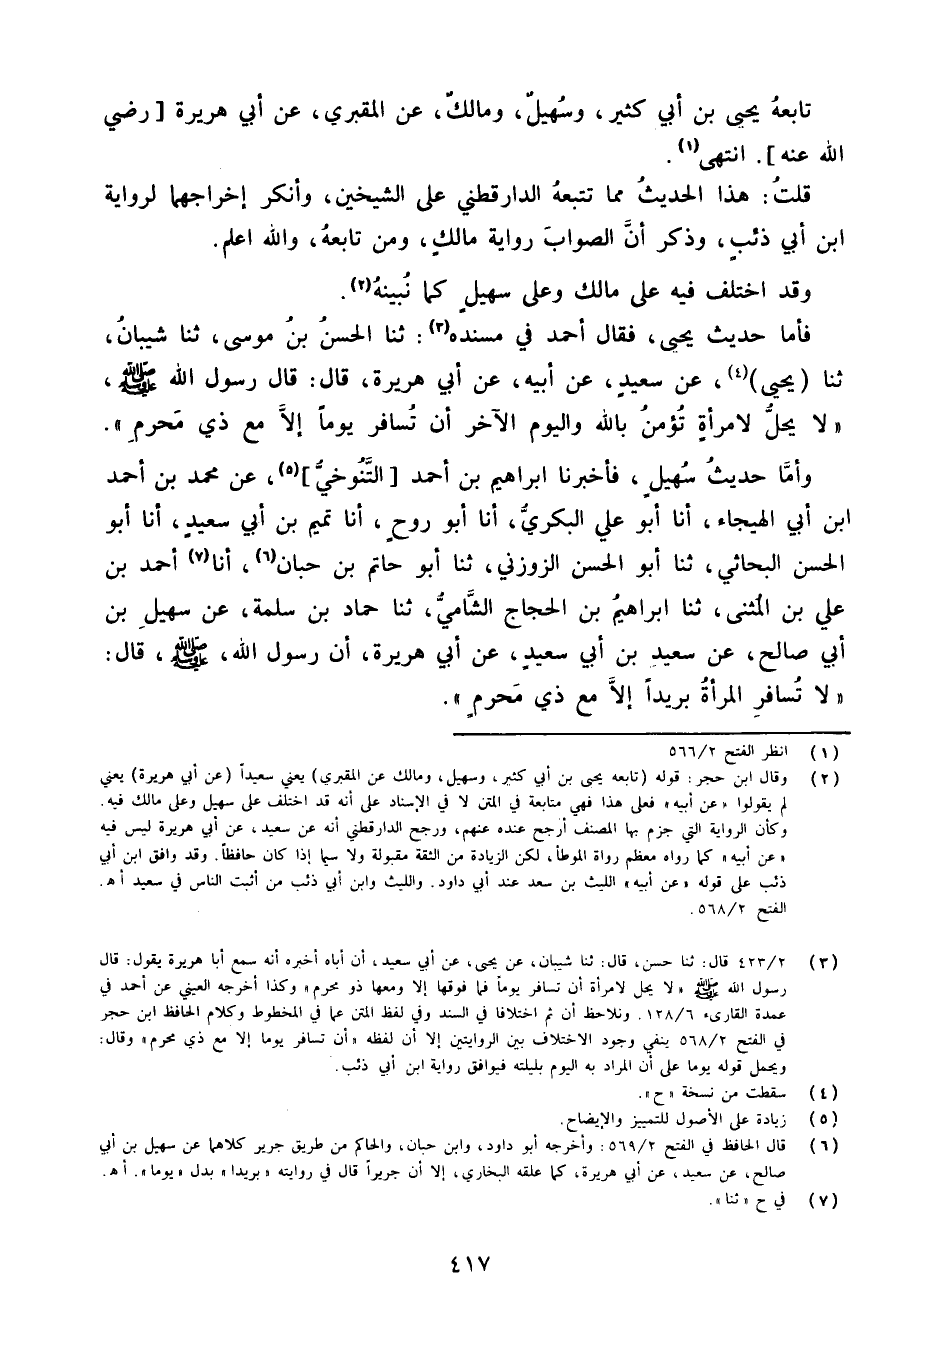 تابعهُ يحيى بن أبي كثير، وسُهيلٌ، ومالكٌ، عن المقبري، عن أبي هريرة [رضي
الله عنه]. انتهى(١).
قلتُ: هذا الحديثُ مما تتبعهُ الدارقطني على الشيخين، وأنكر إخراجهما لرواية
ابن أبي ذئبٍ، وذكر أنَّ الصوابَ رواية مالكٍ، ومن تابعهُ، والله اعلم.
وقد اختلف فيه على مالك وعلى سهيلٍ كما نُبينهُ(٢).
فأما حديث يحيى، فقال أحمد في مسنده(٣): ثنا الحسنُ بنُ موسى، ثنا شيبانُ،
ثنا (يحيى)(٤)، عن سعيدٍ، عن أبيه، عن أبي هريرة، قال: قال رسول الله ﷺ،
«لا يحلُّ لامرأةٍ تُؤمنُ بالله واليوم الآخر أن تُسافر يوماً إلاَّ مع ذي مَحرمٍ».
وأمَّا حديثُ سُهيلٍ، فأخبرنا ابراهيم بن أحمد [التَّنُوخيُّ](٥)، عن محمد بن أحمد
ابن أبي الهيجاء، أنا أبو علي البكريُّ، أنا أبو روحٍ، أنا تميم بن أبي سعيدٍ، أنا أبو
الحسن البحاثي، ثنا أبو الحسن الزوزني، ثنا أبو حاتم بن حبان(٦)، أنا(٧) أحمد بن
علي بن المُثنى، ثنا ابراهيمُ بن الحجاج الشَّاميُّ، ثنا حماد بن سلمة، عن سهيلِ بن
أبي صالح، عن سعيدِ بن أبي سعيدٍ، عن أبي هريرة، أن رسول الله، ﷺ، قال:
«لا تُسافرِ المرأةُ بريداً إلاَّ مع ذي مَحرمٍ».
(١) انظر الفتح ٥٦٦/٢
(٢) وقال ابن حجر: قوله (تابعه يحيى بن أبي كثير، وسهيل، ومالك عن المقبري) يعني سعيداً (عن أبي هريرة) يعني
لم يقولوا «عن أبيه» فعلى هذا فهي متابعة في المتن لا في الإسناد على أنه قد اختلف على سهيل وعلى مالك فيه.
وكأن الرواية التي جزم بها المصنف أرجح عنده عنهم، ورجح الدارقطني أنه عن سعيد، عن أبي هريرة ليس فيه
«عن أبيه» كما رواه معظم رواة الموطأ، لكن الزيادة من الثقة مقبولة ولا سيما إذا كان حافظاً. وقد وافق ابن أبي
ذئب على قوله «عن أبيه» الليث بن سعد عند أبي داود. والليث وابن أبي ذئب من أثبت الناس في سعيد أ هـ.
الفتح ٥٦٨/٢.
(٣) ٤٢٣/٢ قال: ثنا حسن، قال: ثنا شيبان، عن يحيى، عن أبي سعيد، أن أباه أخبره أنه سمع أبا هريرة يقول: قال
رسول الله ﷺ «لا يحل لامرأة أن تسافر يوماً فما فوقها إلا ومعها ذو محرم» وكذا أخرجه العيني عن أحمد في
عمدة القارىء ١٢٨/٦. ونلاحظ أن ثم اختلافا في السند وفي لفظ المتن عما في المخطوط وكلام الحافظ ابن حجر
في الفتح ٥٦٨/٢ ينفي وجود الاختلاف بين الروايتين إلا أن لفظه «أن تسافر يوما إلا مع ذي محرم» وقال:
ويحمل قوله يوما على أن المراد به اليوم بليلته فيوافق رواية ابن أبي ذئب.
(٤) سقطت من نسخة «ح».
(٥) زيادة على الأصول للتمييز والإيضاح.
(٦) قال الحافظ في الفتح ٥٦٩/٢: وأخرجه أبو داود، وابن حبان، والحاكم من طريق جرير كلاهما عن سهيل بن أبي
صالح، عن سعيد، عن أبي هريرة، كما علقه البخاري، إلا أن جريراً قال في روايته «بريدا» بدل «يوما». أ هـ.
(٧) في ح «ثنا».
٤١٧